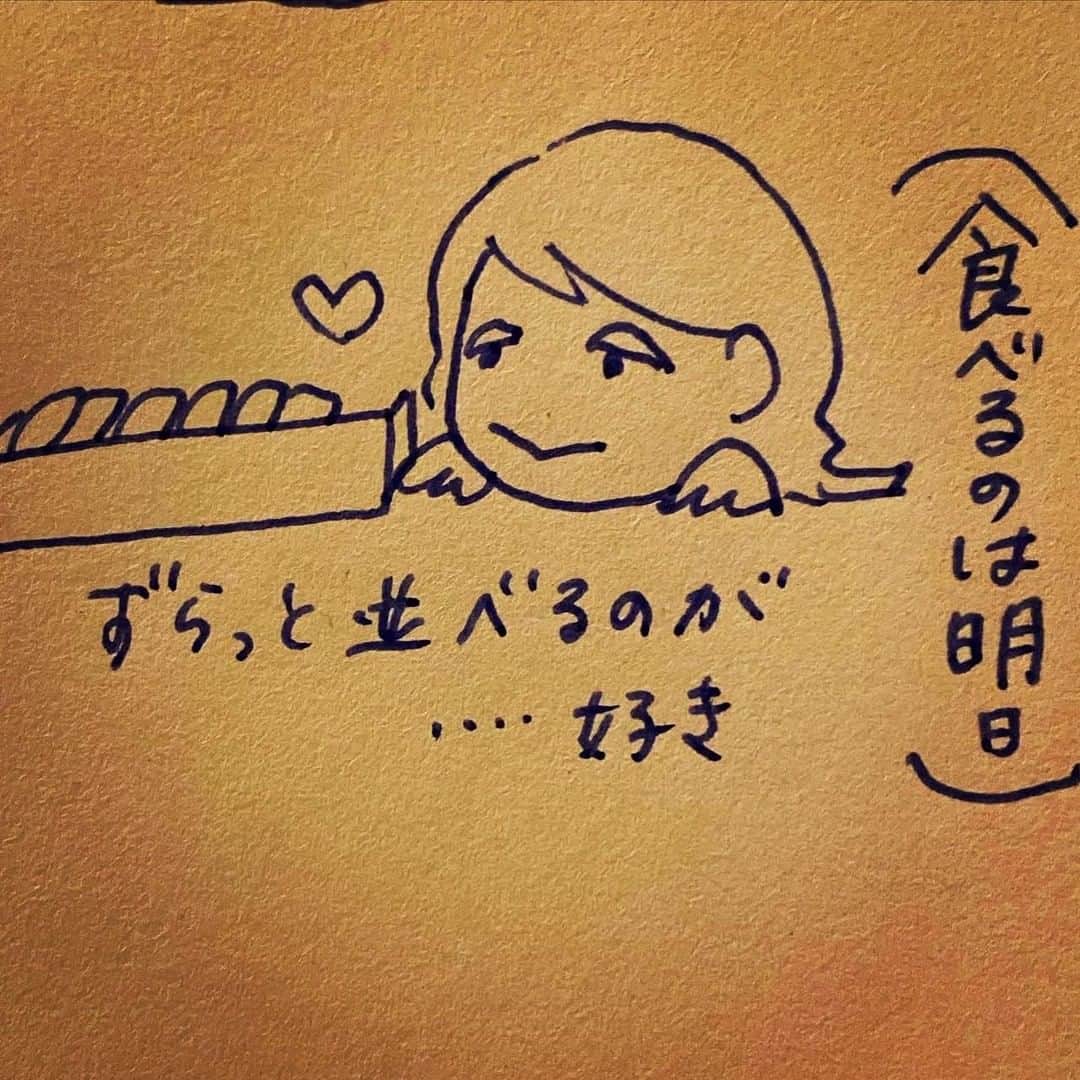 ずらっと並べるのが
····好き
(食べるのは明日)